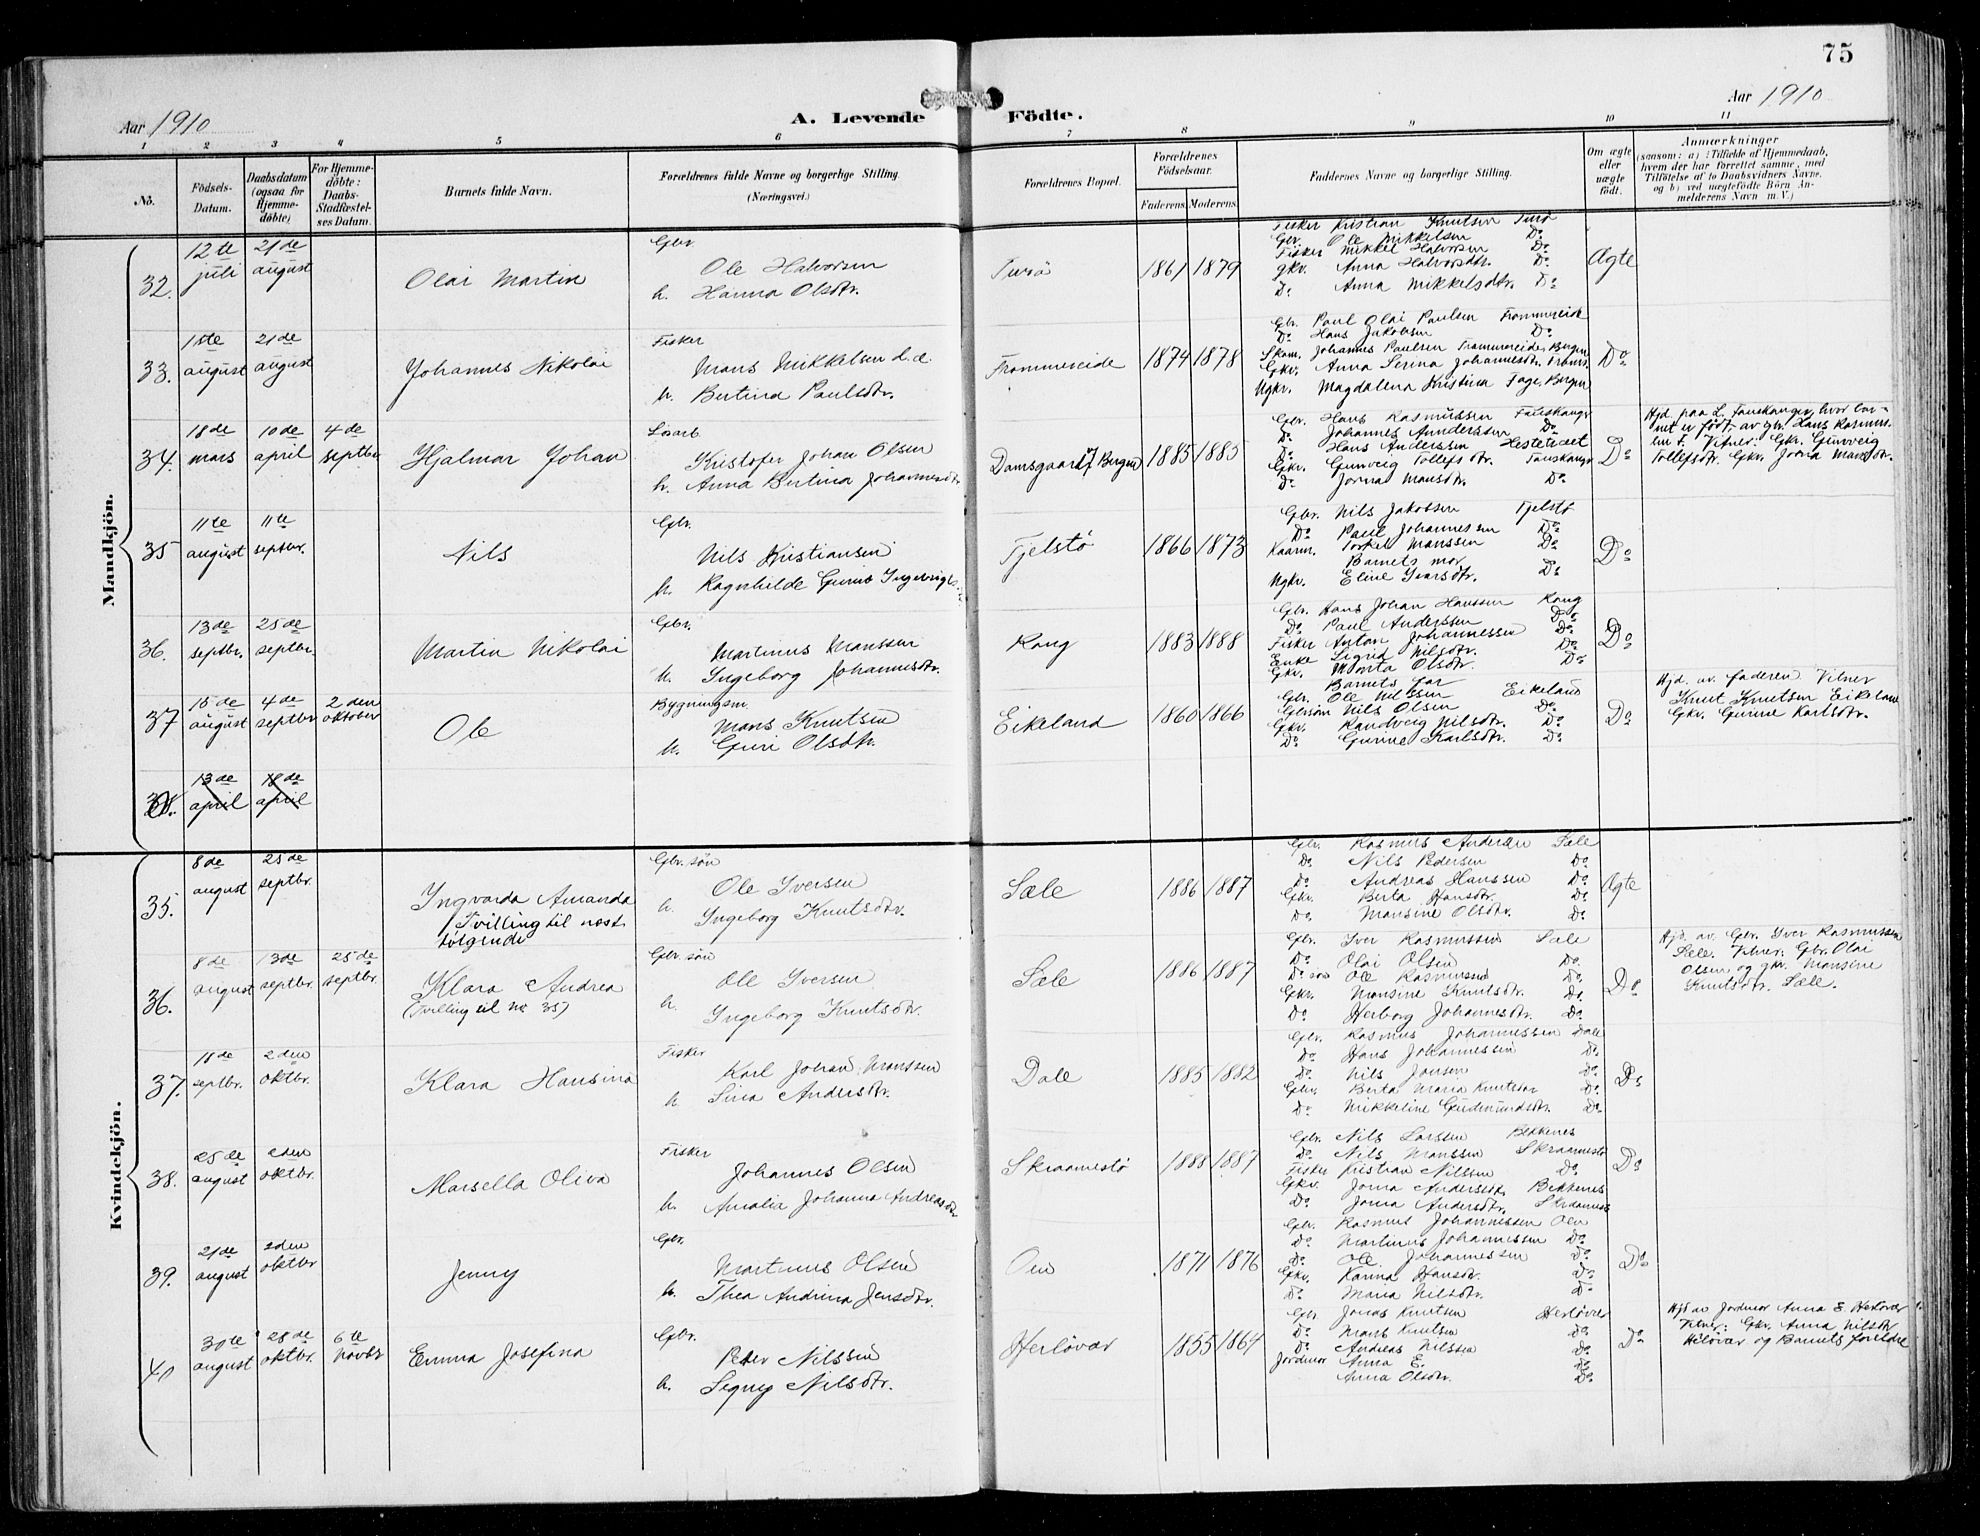 75
Aar 1910
A. Levende Födte.
Aar 1910
1 2 3 4 5 6 7 8 9 10 11
No.
Födsels-Datum.
Daabsdatum (ogsaa for Hjemme-döbte)
For Hjemme-döbte: Daabs-Stadfæstel-ses Datum.
Barnets fulde Navn.
Forældrenes fulde Navne og borgerlige Stilling. (Næringsvei.)
Forældrenes Bopæl.
Forældrenes Födselsaar.
Faderens. Moderens.
Faddernes Navne og borgerlige Stilling.
Om ægte eller uægte födt.
Anmærkninger
(saasom: a) i Tilfælde af Hjemmedaab, hvem der har forrettet samme, med Tilföielse af to Daabsvidners Navne, og b) ved uægtefödte Börn An-melderens Navn m.V.)
Mandkjön.
32. 12te juli 21de august Olai Martin
Gbr. Ole Halvorsen
h. Hanna Olsdtr.
Turö 1861 1879
Fisker Kristian Knutsen Turö
Gbr. Ole Mikkelsen Do
Fisker Mikkel Halvorsen Do
gkv. Anna Halvorsdtr. Do
Do Anna Mikkelsdtr. Do
Ægte
33. 1ste august 21de august Johannes Nikolai
Fisker
Mons Mikkelsen d.e.
h. Bertina Paulsdtr.
Frommereide 1874 1878
Gbr. Paul Olai Paulsen Frommereide
Do Hans Jakobsen Do
Skom. Johannes Paulsen Frommereide, Bergen
Gkv. Anna Serina Johannesdtr. Fromr.
Ugkv. Magdalena Kristina Fage, Bergen
Do
34. 18de mars 10de april 4de septbr Hjalmar Johan
Lösarb.
Kristofer Johan Olsen
h. Anna Bertina Johannesdtr
Damsgaard, Bergen 1885 1885
Gbr. Hans Rasmussen Fauskanger
Do Johannes Anderssen Do
Do Hans Anderssen Hesteneset
Gkv. Gunveig Tollefsdtr. Fauskangr
Do Jorina Monsdtr. Do
Do
Hjd. paa L. Fauskanger, hvor bar-
net er født av gbr. Hans Rasmus-
sen F. Vitner: Gkv. Gunveig
Tollefsdtr. Gkv. Jorina Monsdtr.
35 11te august 11te septbr. Nils
Gbr.
Nils Kristiansen
h. Ragnhilde Gurine Ingebrigts.
Fjelstö 1866 1873
Gbr. Nils Jakobsen Fjelstö
Do Paul Johannessen Do
Kaarm. Torkel Monssen Do
Barnets mor
Ugkv. Eline Ivarsdtr. Do
Do
36. 13de septbr. 25de septbr. Martin Nikolai
Gbr.
Martinus Monssen
h. Ingeborg Johannesdtr.
Rong 1883 1888
Gbr. Hans Johan Hanssen Rong
Do Paul Anderssen Do
Fisker Anton Johannessen Do
Enke Sigrid Nilsdtr. Do
Gkv. Marta Olsdtr. Do
Do
37 15de august 4de septbr 2den oktober Ole
Bygningsm.
Mons Knutsen
h. Guri Olsdtr.
Eikeland 1860 1866
Barnets far
Gbr. Ole Nilssen Eikeland
Gbrsön Nils Olsen Do
Gkv. Randveig Nilsdtr. Do
Do Gurine Karlsdtr. Do
Do
Hjd. av faderen. Vitner
Knut Knutsen Eikeland
Gkv. Gurine Karlsdtr.
38. 13de april 18de april
Kvindekjön.
35. 8de august 25de septbr. Ingvarda Amanda
Tvilling til næst
følgende
Gbr. søn
Ole Iversen
h. Ingeborg Knutsdtr.
Sæle 1886 1887
Gbr. Rasmus Andersen Sæle
Do Nils Pedersen Do
Do Andreas Hanssen Do
Gkv. Berta Hansdtr. Do
Do Monsine Olsdtr. Do
Ægte
36. 8de august 13de septbr. 25de septbr. Klara Andrea
(Tvilling til no 35)
Gbr. søn
Ole Iversen
h. Ingeborg Knutsdtr.
Sæle 1886 1887
Gbr. Iver Rasmussen Sæle
Do Olai Olsen Do
Do søn Ole Rasmussen Do
Gkv. Monsine Knutsdtr. Do
Do Herborg Johannesdtr. Do
Do
Hjd. av Gbr. Iver Rasmussen
Sæle. Vitner: Gbr. Olai
Olsen og gkv. Monsine
Knutsdtr. Sæle.
37. 11de septbr. 2den oktbr. Klara Hansina
Fisker
Karl Johan Monssen
h. Sina Andersdtr.
Dale 1885 1882
Gbr. Rasmus Johannessen Dale
Do Hans Johannessen Do
Do Nils Jonsen Do
Gkv. Berta Maria Knutsdtr Do
Do Mikkeline Gudmundsdtr. Do
Do
38. 25de august 2den oktbr. Marsella Oliva
Fisker
Johannes Olsen
h. Amalia Johanna Andreasdtr
Skraamestö 1888 1887
Gbr. Nils Larssen Bekkenes
Do Nils Monssen Skraamestö
Fisker Kristian Nilssen Do
Gkv. Jorina Andersdtr. Bekkenes
Do Jorina Andersdtr. Skraamest
Do
39. 21de august 2den oktbr Jenny
Gbr.
Martinus Olsen
h. Thea Andrina Jensdtr.
Oen 1871 1876
Gbr. Rasmus Johannessen Oen
Do Martinus Johannessen Do
Do Ole Johannessen Do
Gkv. Karina Hansdtr. Do
Do Maria Nilsdtr. Do
Do
40 30te august 28de oktbr. 6te novbr Emma Josefina
Gbr.
Peder Nilssen
h. Signy Nilsdtr.
Herlövær 1855 1864
Gbr Jonas Knutsen Herlövær
Do Mons Knutsen Do
Do Andreas Nilssen Do
Jordmor Anna E. Do
Anna Olsdtr. Do
Do
Hjd av jordmor Anna E. Herlövær
Vitner: Gkv. Anna Nilsdtr
Herlövær og Barnets foreldre